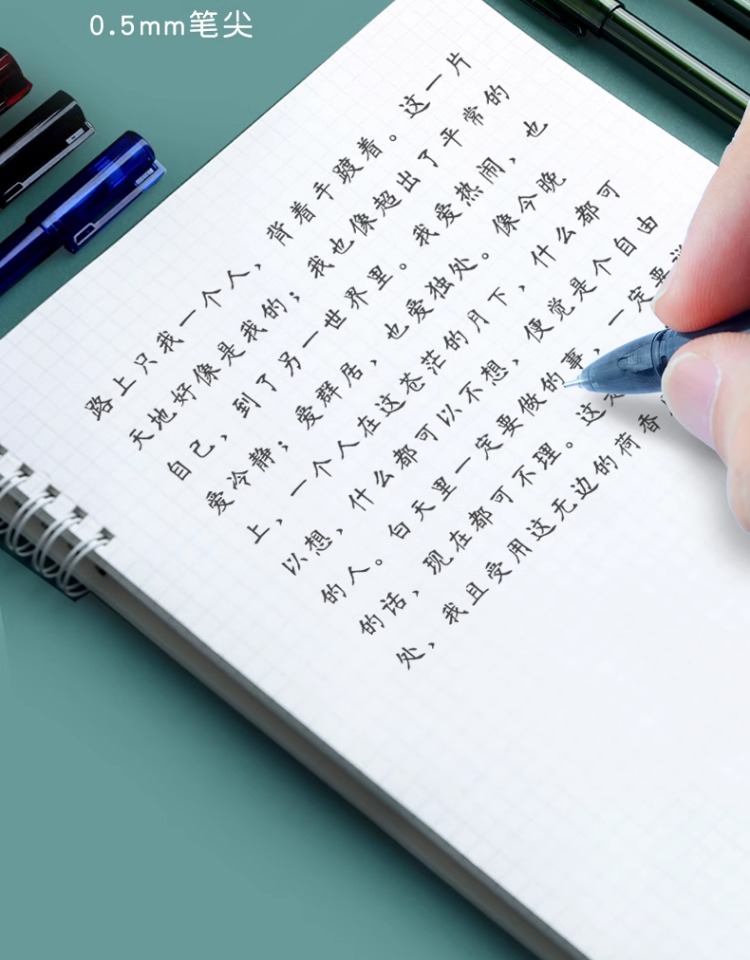 0.5mm笔尖
路上只我一个人，背着手踱着。这一片
天地好像是我的；我也像超出了平常的
自己，到了另一世界里。我爱热闹，也
爱冷静；爱群居，也爱独处。像今晚
上，一个人在这苍茫的月下，什么都可
以想，什么都可以不想，便觉是个自由
的人。白天里一定要做的事，一定要
的话，现在都可不理。这
处，我且受用这无边的荷香